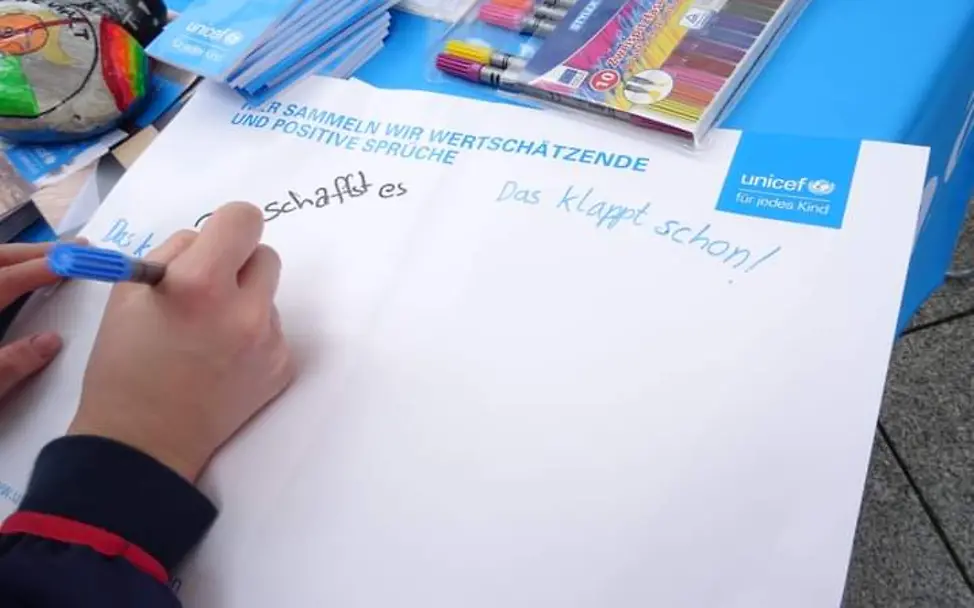 unicef
für jedes Kind
HIER SAMMELN WIR WERTSCHÄTZENDE
UND POSITIVE SPRÜCHE
unicef
für jedes Kind
schaffst es
Das klappt schon!
Das k
10